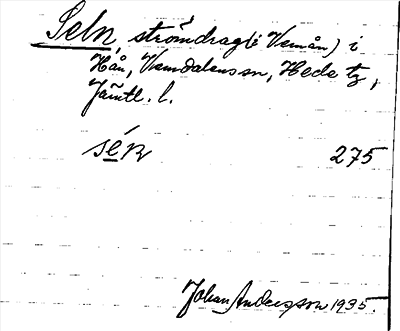 Seln, strömdrag (i Vemån) i
Hån, Vemdalens sn, Hede tg,
Jämtl. l.
sén 275
Johan Andersson 1935.